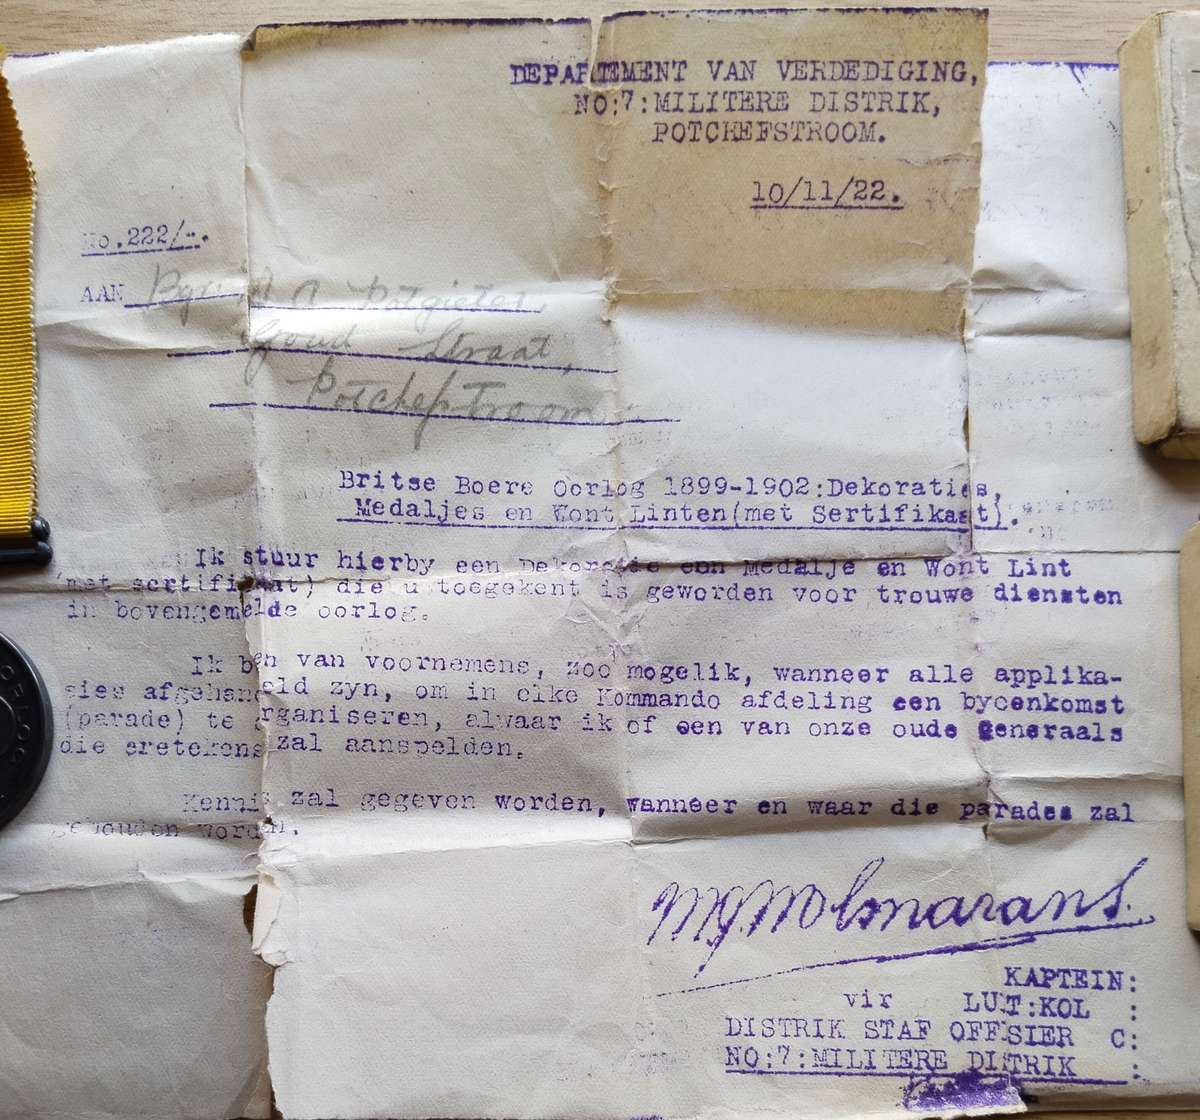 DEPARTEMENT VAN VERDEDIGING,
NO:7:MILITERE DISTRIK,
POTCHEFSTROOM.
10/11/22.
No.222/-.
AAN Potgieter,
Goud Straat,
Potchefstroom
Britse Boere Oorlog 1899-1902:Dekoraties,
Medaljes en Wont Linten(met Sertifikaat).
Ik stuur hierby een Dekoratie een Medalje en Wont Lint
(met sertifikaat) die u toegekent is geworden voor trouwe diensten
in bovengemelde oorlog.
Ik ben van voornemens, zoo mogelik, wanneer alle applika-
sies afgehandeld zyn, om in elke Kommando afdeling een byeenkomst
(parade) te organiseren, alwaar ik of een van onze oude Generaals
die eretekens zal aanspelden.
Kennis zal gegeven worden, wanneer en waar die parades zal
gehouden worden.
KAPTEIN:
vir LUIT:KOL :
DISTRIK STAF OFFISIER C:
NO:7:MILITERE DISTRIK :
OORLOG